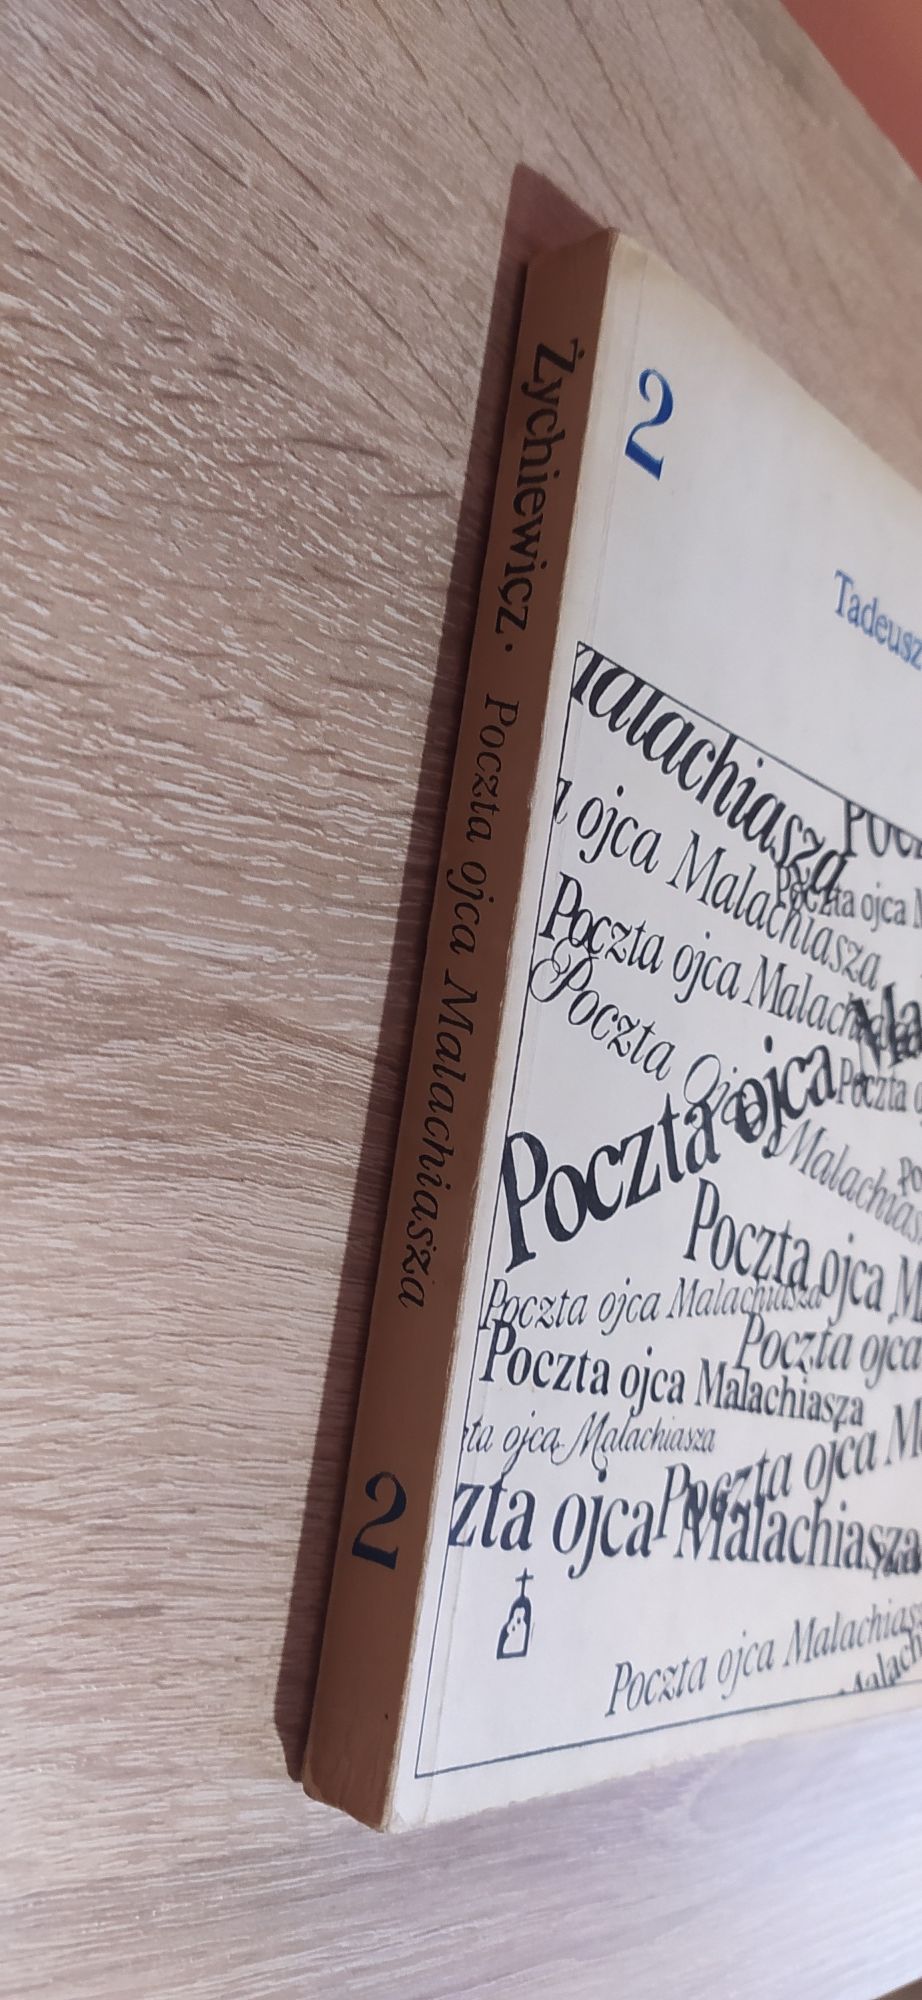 Żychiewicz · Poczta ojca Malachiasza 2
2
Tadeusz
Malachiasza
ojca Malachiasza
Poczta ojca
Poczta ojca Malachiasza
Poczta Ojca Malachiasza
Poczta ojca
Poczta
Poczta ojca
Poczta ojca Malachiasza
Poczta ojca
Poczta ojca Malachiasza
ta ojca Malachiasza
Poczta ojca
zta ojca Malachiasza
Poczta ojca